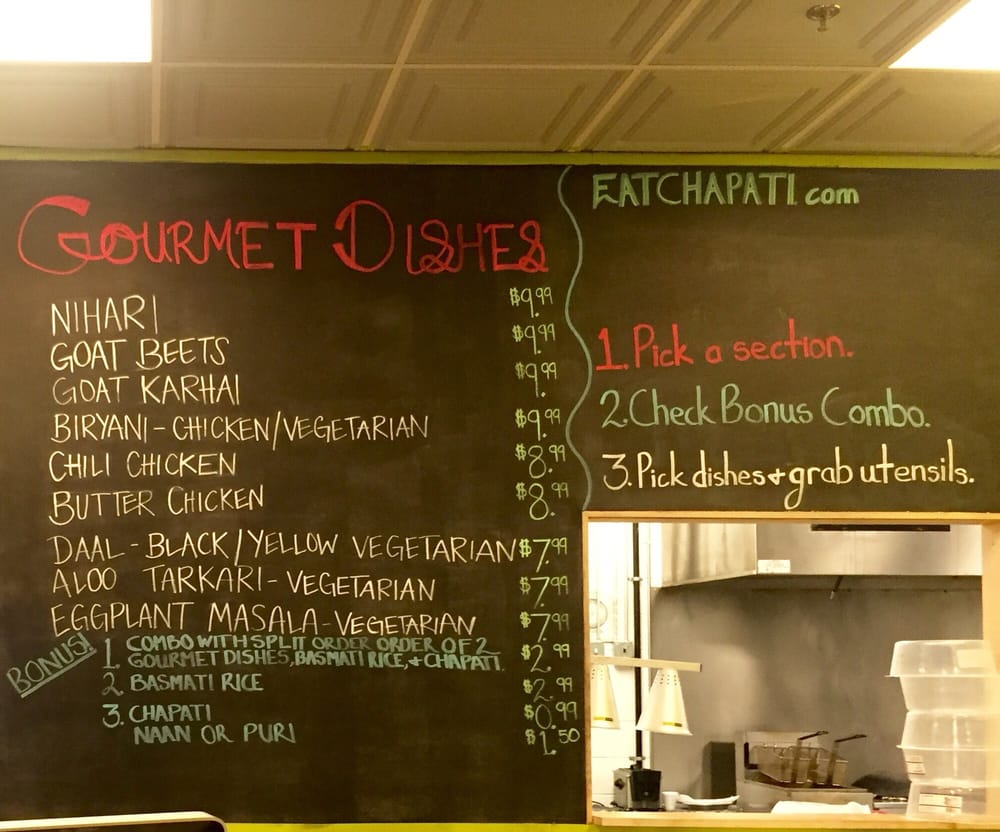 GOURMET DISHES
NIHARI $9.99
GOAT BEETS $9.99
GOAT KARHAI $9.99
BIRYANI - CHICKEN/VEGETARIAN $9.99
CHILI CHICKEN $8.99
BUTTER CHICKEN $8.99
DAAL - BLACK/YELLOW VEGETARIAN $7.99
ALOO TARKARI - VEGETARIAN $7.99
EGGPLANT MASALA - VEGETARIAN $7.99
BONUS!
1. COMBO WITH SPLIT ORDER ORDER OF 2
GOURMET DISHES, BASMATI RICE, + CHAPATI. $2.99
2 BASMATI RICE $2.99
3. CHAPATI $0.99
NAAN OR PURI $1.50
EATCHAPATI.com
1. Pick a section.
2. Check Bonus Combo.
3. Pick dishes + grab utensils.